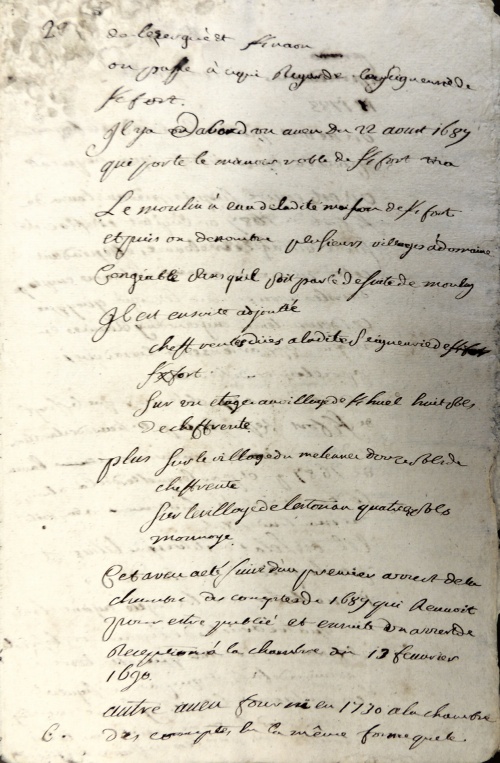 2
de lesergué et
on passe à ce qui Regarde la seigneurie de
Kfort.
Il y a D'abord un aveu du 22 aoust 1689
qui porte le manoir noble de Kfort
Le moulin à eau de ladite maison de Kfort
et puis on denombre plusieurs villages à domaine
Congeable sans qu'il soit parlé de suite de moulin
Il est ensuite adjouté
cheff rentes dües a ladite Seigneurie de
Kfort.
Sur un etage au village de Khuel huit sols
De cheffrente
plus Sur le village du douze sols de
cheffrente
Sur le village de quatre sols
monnoye.
Cet aveu a eté suivi d'un premier arrest de la
chambre des comptes de 1689 qui Renvoit
pour estre publié et ensuite d'un arrest de
Reception à la chambre du 13 feuvrier
1690.
autre aveu fourni en 1730 a la chambre
des comptes en la même forme que le